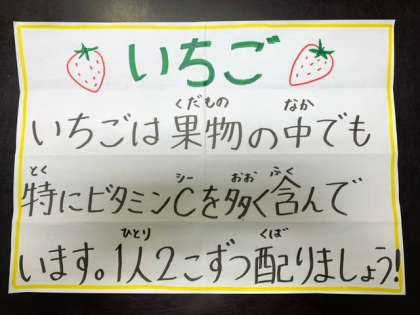 いちご
くだもの なか
いちごは果物の中でも
とく シー おお ふく
特にビタミンCを多く含んで
ひとり くば
います。1人2こずつ配りましょう!